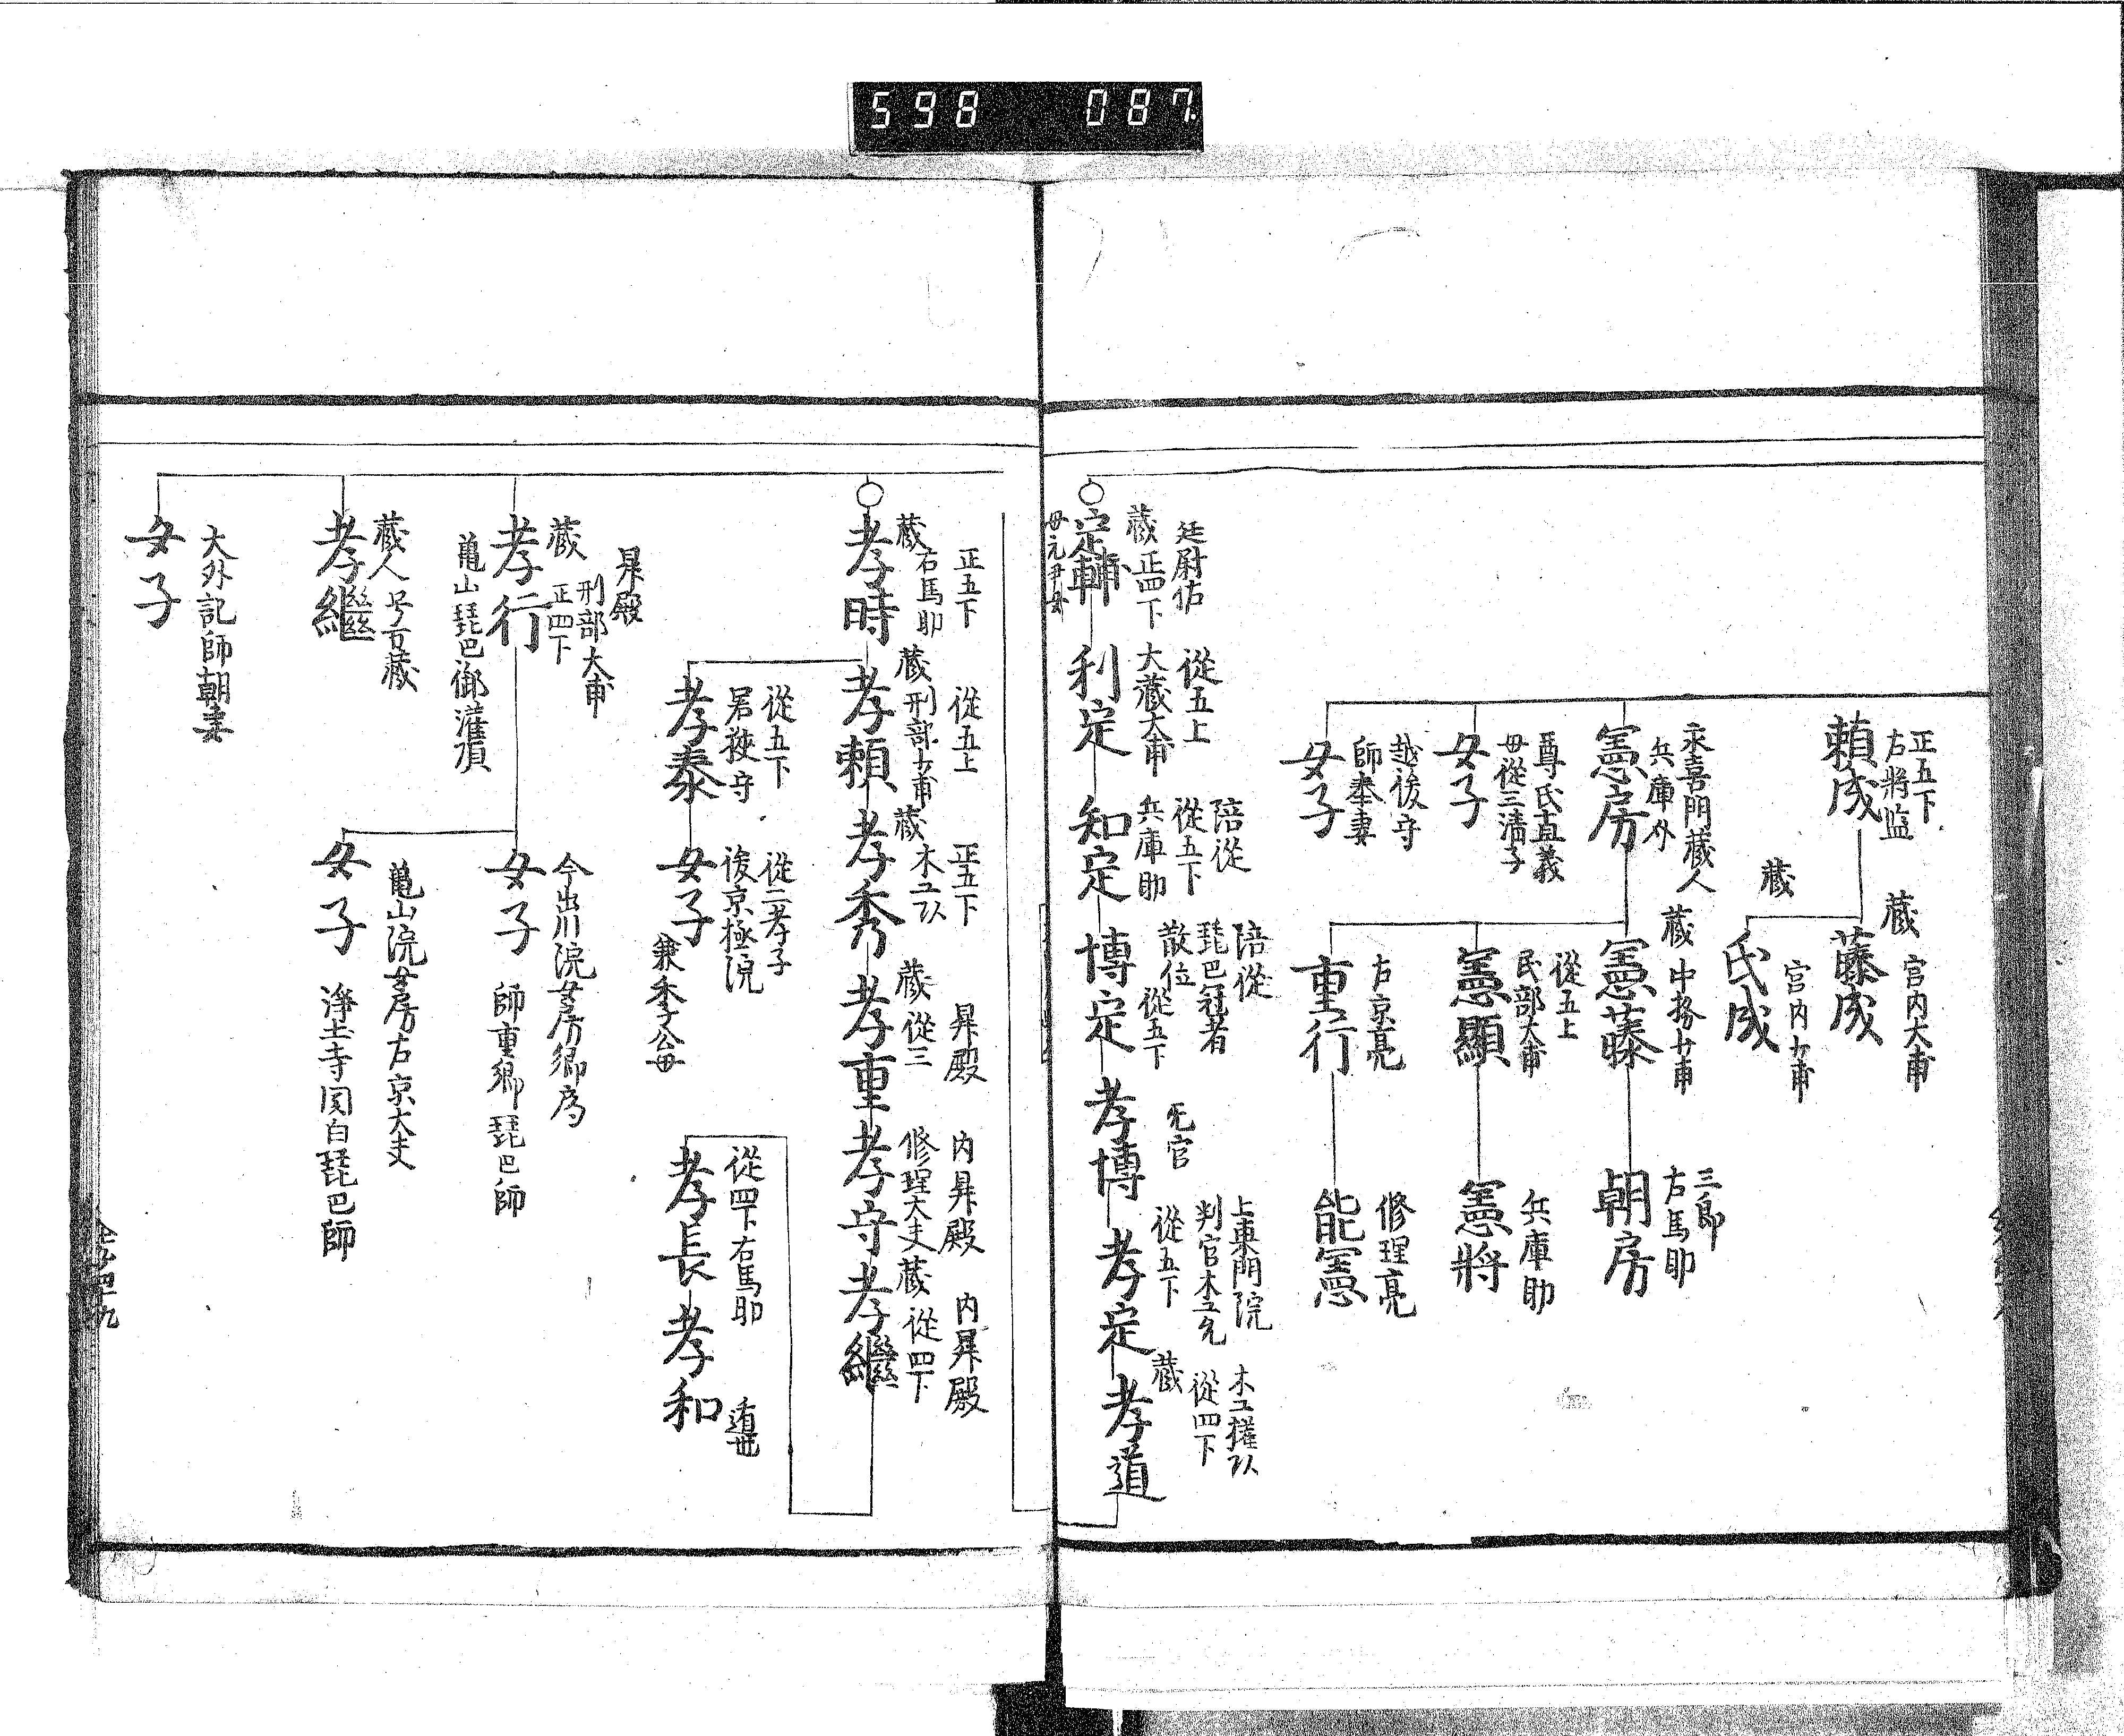 598 087
正五下
右將監
賴成
蔵
宮内大甫
藤成
蔵
宮内少甫
氏成
永喜門蔵人
兵庫
憲房
蔵
中務少甫
憲藤
三郎
右馬助
朝房
尊氏直義
母從三清子
女子
從五上
民部大甫
憲顯
兵庫助
憲將
越後守
師泰妻
女子
右京亮
重行
修理亮
能憲
廷尉佐
蔵
正四下
定輔
從五上
大藏大甫
利定
陪從
從五下
兵庫助
知定
陪從
琵巴冠者
散位從五下
博定
无官
孝博
上東門院
判官木工允
從五下
孝定
木工權
從四下
蔵
孝道
正五下
右馬助
蔵
孝時
從五上
刑部少甫
蔵
孝頼
正五下
木工
蔵
孝秀
昇殿
蔵
從三
孝重
内昇殿
修理大夫
孝守
内昇殿
蔵
從四下
孝繼
從五下
若狹守
孝泰
從二孝子
後京極院
女子
兼季公母
從四下右馬助
孝長
孝和
昇殿
刑部大甫
正四下
蔵
孝行
亀山琵巴御灌頂
今出川院女房卿局
女子
師重卿琵巴師
蔵人
孝繼
亀山院女房右京大夫
女子
淨土寺関白琵巴師
大外記師朝妻
女子